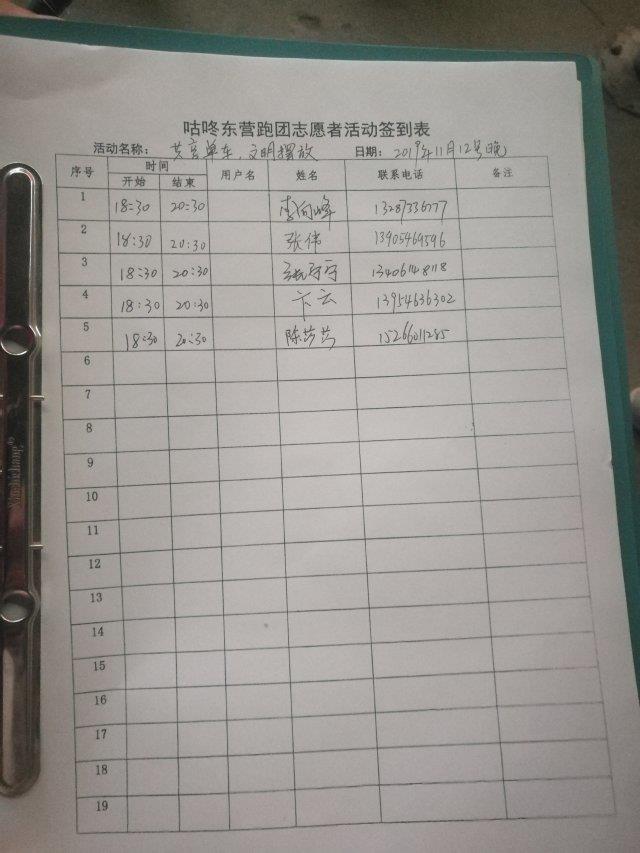 咕咚东营跑团志愿者活动签到表
活动名称： 共享单车，文明摆放 日期： 2019年11月12号晚
序号 时间 用户名 姓名 联系电话 备注
开始 结束
1 18:30 20:30 李向峰 13287336777
2 18:30 20:30 张伟 13905469596
3 18:30 20:30 13406148118
4 18:30 20:30 卞云 13954636302
5 18:30 20:30 陈莎莎 15266011285
6
7
8
9
10
11
12
13
14
15
16
17
18
19